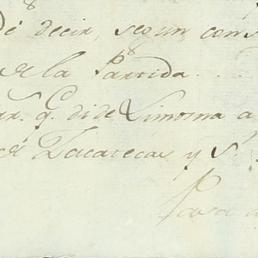 decir, segun cons
de la Partida
q. di de Limosna a
de Zacatecas y S.
Pasa a